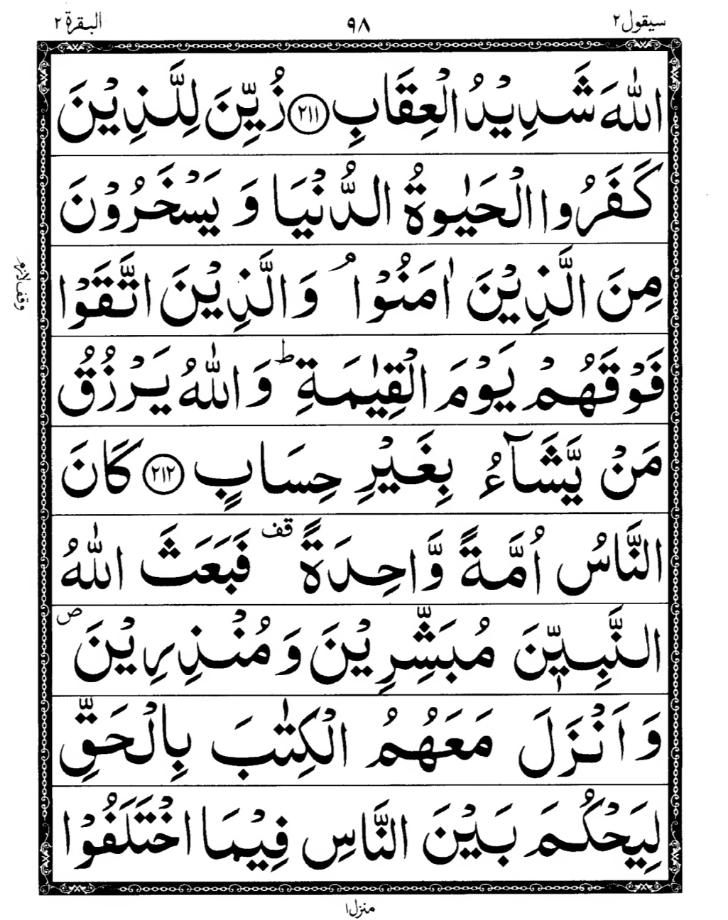 سيقول ٢ ٩٨ البقرة ٢
اللهَ شَدِيْدُ الْعِقَابِ ﴿٢١١﴾ زُيِّنَ لِلَّذِيْنَ
كَفَرُوا الْحَيٰوةُ الدُّنْيَا وَ يَسْخَرُوْنَ
مِنَ الَّذِيْنَ اٰمَنُوْا ۘ وَالَّذِيْنَ اتَّقَوْا
وقف لازم
فَوْقَهُمْ يَوْمَ الْقِيٰمَةِ ؕ وَاللّٰهُ يَرْزُقُ
مَنْ يَّشَآءُ بِغَيْرِ حِسَابٍ ﴿٢١٢﴾ كَانَ
النَّاسُ اُمَّةً وَّاحِدَةً قف فَبَعَثَ اللّٰهُ
النَّبِيّٖنَ مُبَشِّرِيْنَ وَ مُنْذِرِيْنَ ص
وَ اَنْزَلَ مَعَهُمُ الْكِتٰبَ بِالْحَقِّ
لِيَحْكُمَ بَيْنَ النَّاسِ فِيْمَا اخْتَلَفُوْا
منزل ١